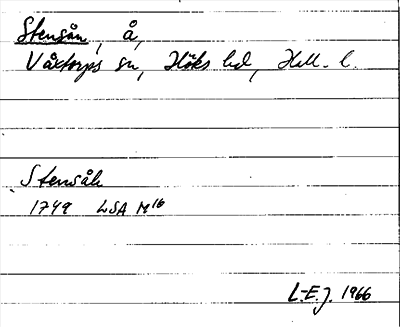 Stensån, å,
Våxtorps sn, Höks hd, Hall. l.
Stensåh
1749 LSA M16
L-E.J. 1966